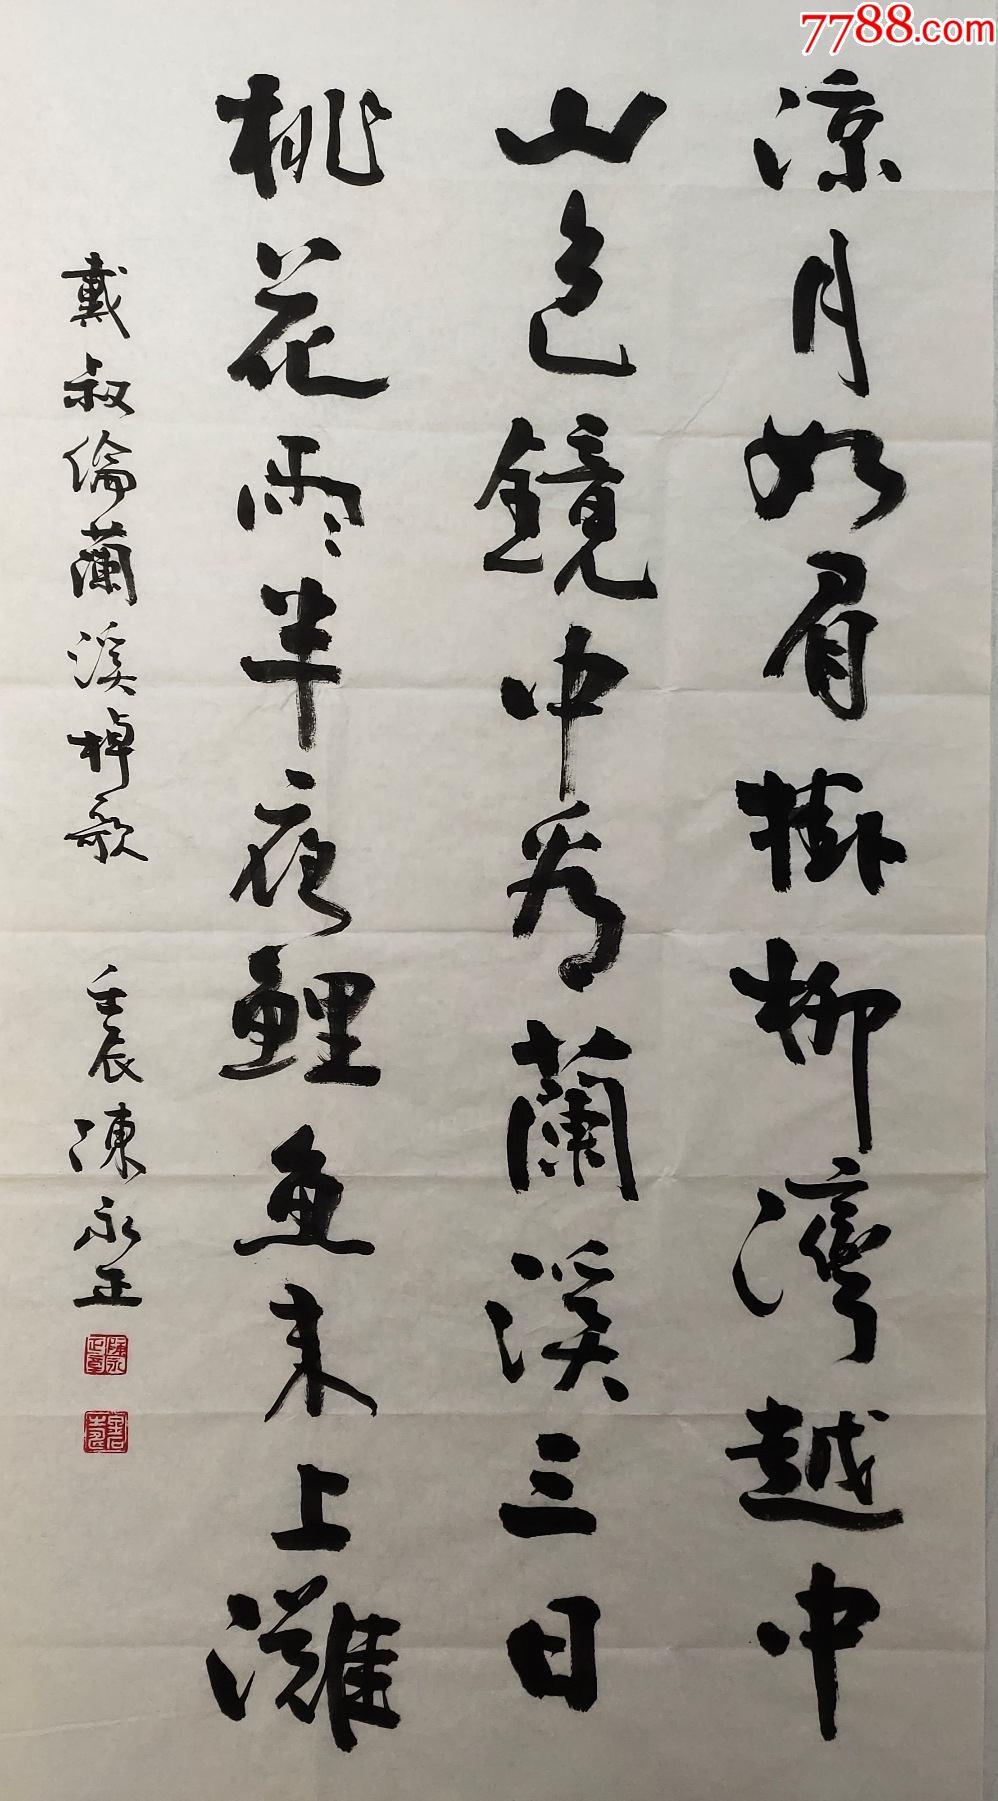 7788.com
涼月如眉掛柳灣越中
山色鏡中看蘭溪三日
桃花雨半夜鯉魚来上灘
戴叔倫蘭溪棹歌 壬辰陳永正